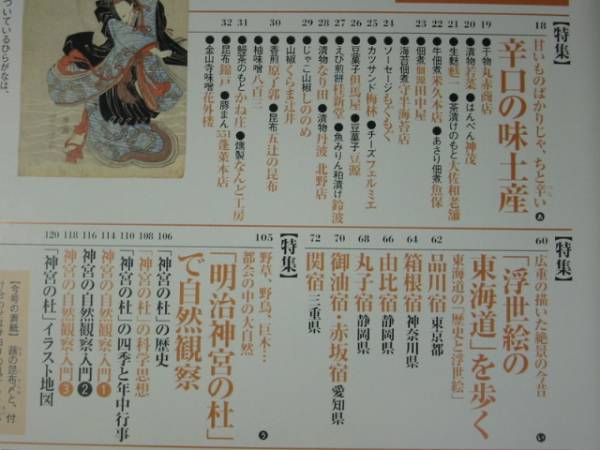 【特集】
甘いものばかりじゃ、ちと辛い
辛口の味土産 あ
18
19 ●干物 丸赤商店
20 ●漬物 若菜 ●はんぺん 神茂
21 ●生麩 麩一 ●茶漬けのもと 大佐和老舗
22 ●牛佃煮 柿安本店 ●あさり佃煮 魚保
23 ●佃煮 佃源田中屋
24 ●海苔佃煮 守半海苔店
●ソーセージ もくもく
25 ●カツサンド 梅林 ●チーズ フェルミエ
26 ●豆菓子 但馬屋 ●豆菓子 豆源
27 ●えび煎餅 桂新堂 ●魚みりん粕漬け 鈴波
28 ●漬物 なり田 ●漬物 丹波 北野店
29 ●じゃこ山椒 しののめ
●山椒 くらま辻井
30 ●香煎 原了郭 ●昆布 五辻の昆布
●柚味噌 八百三
31 ●鰻茶のもと かね庄 ●燻製 なんど工房
32 ●昆布 錦戸 ●豚まん 551蓬莱本店
●金山寺味噌 花外楼
ついているひらがなは、
【特集】
広重の描いた絶景の今昔
「浮世絵の
東海道」を歩く い
東海道の「歴史と浮世絵」
60
62 品川宿 東京都
64 箱根宿 神奈川県
66 由比宿 静岡県
68 丸子宿 静岡県
70 御油宿・赤坂宿 愛知県
72 関宿 三重県
【特集】
野草、野鳥、巨木…
都会の中の大自然
「明治神宮の杜」
で自然観察 う
105
106 「神宮の杜」の歴史
108 「神宮の杜」の科学思想
110 「神宮の杜」の四季と年中行事
114 神宮の自然観察入門 1
116 神宮の自然観察入門 2
118 神宮の自然観察入門 3
120 「神宮の杜」イラスト地図
【今号の表紙】